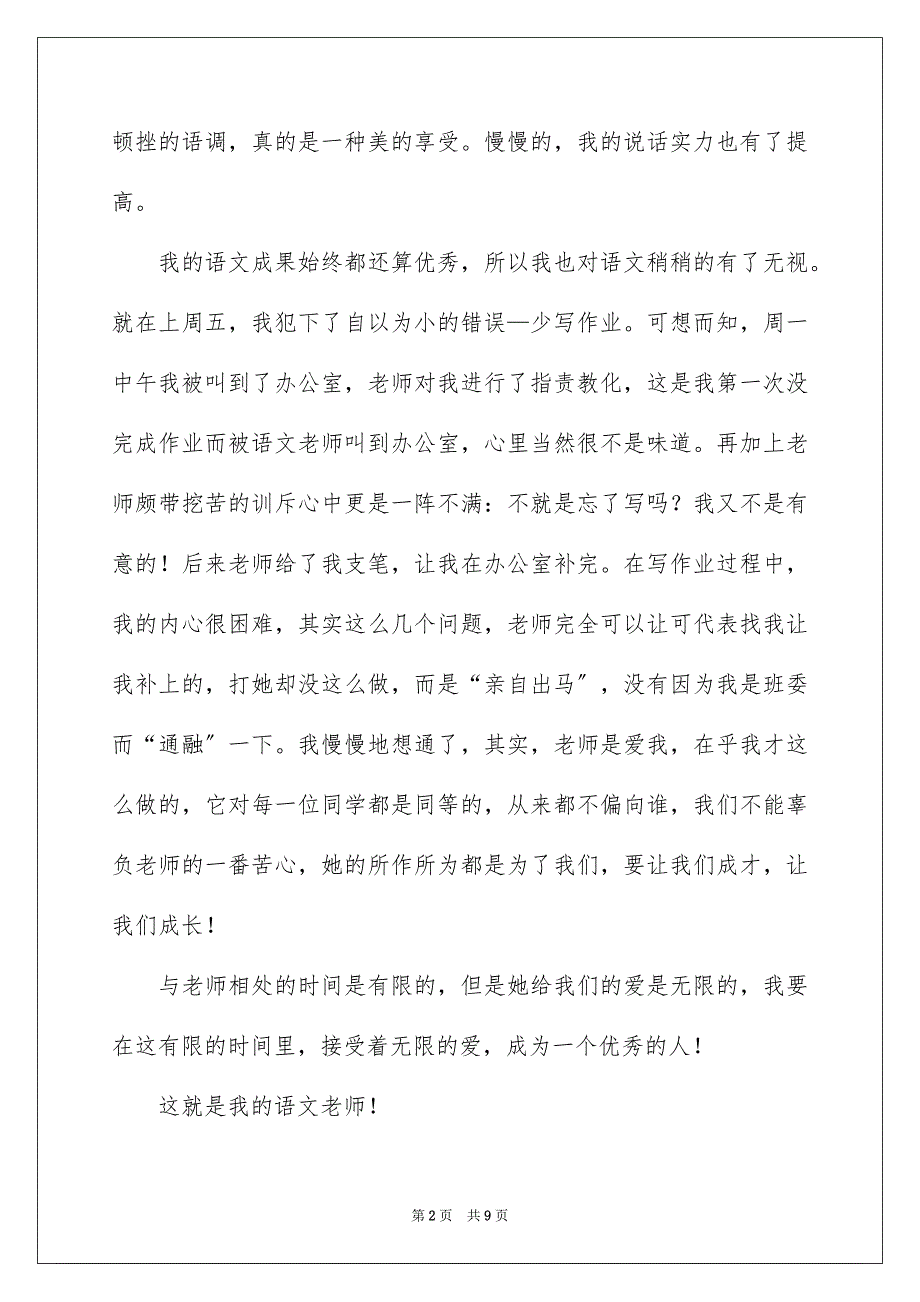 顿挫的语调，真的是一种美的享受。慢慢的，我的说话实力也有了提
高。
我的语文成果始终都还算优秀，所以我也对语文稍稍的有了无视。
就在上周五，我犯下了自以为小的错误—少写作业。可想而知，周一
中午我被叫到了办公室，老师对我进行了指责教化，这是我第一次没
完成作业而被语文老师叫到办公室，心里当然很不是味道。再加上老
师颇带挖苦的训斥心中更是一阵不满：不就是忘了写吗？我又不是有
意的！后来老师给了我支笔，让我在办公室补完。在写作业过程中，
我的内心很困难，其实这么几个问题，老师完全可以让可代表找我让
我补上的，打她却没这么做，而是“亲自出马〞，没有因为我是班委
而“通融〞一下。我慢慢地想通了，其实，老师是爱我，在乎我才这
么做的，它对每一位同学都是同等的，从来都不偏向谁，我们不能辜
负老师的一番苦心，她的所作所为都是为了我们，要让我们成才，让
我们成长！
与老师相处的时间是有限的，但是她给我们的爱是无限的，我要
在这有限的时间里，接受着无限的爱，成为一个优秀的人！
这就是我的语文老师！
第2页 共9页